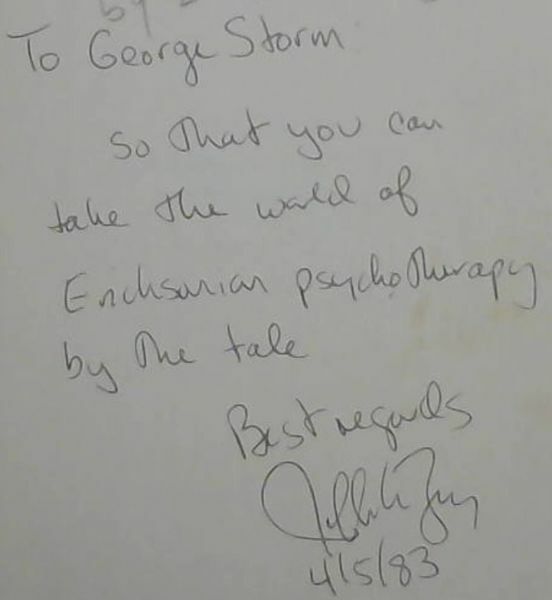 by
To George Storm
So that you can
take the world of
Ericksonian psychotherapy
by the tale
Best regards
4/5/83